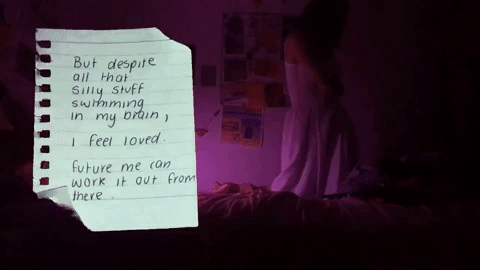 But despite
all that
silly stuff
swimming
in my brain,
I feel loved.
future me can
work it out from
there.